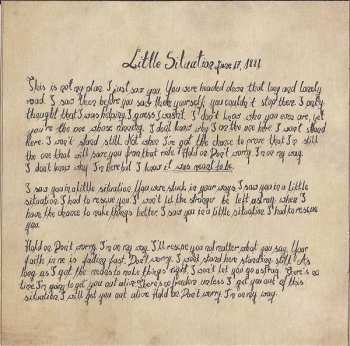 Little Situation June 17, 1881
This is not my place. I just saw you. You were headed down that long and lonely
road. I saw them before you saw them yourself, you couldn't stop them. I only
thought that I was helping, I guess I wasn't. I don't know who you even are, yet
you're the one whose needing. I don't know why I am the one here. I won't stand
here. I won't stand still. Not when I've got the chance to prove that I'm still
the one that will save you from that note. Hold on. Don't worry. I'm on my way.
I don't know why I'm here but I know it was meant to be.
I saw you in a little situation. You were stuck in your ways. I saw you in a little
situation. I had to rescue you. I won't let the stranger be left astray when I
have the chance to make things better. I saw you in a little situation. I had to rescue
you.
Hold on. Don't worry. I'm on my way. I'll rescue you no matter what you say. Your
faith in me is fading fast. Don't worry. I won't stand here standing still. As
long as I got the means to make things right, I won't let you go astray. There's no
time. I'm going to get you out alive. There's no freedom unless I get you out of this
situation. I will get you out alive. Hold on. Don't worry. I'm on my way.